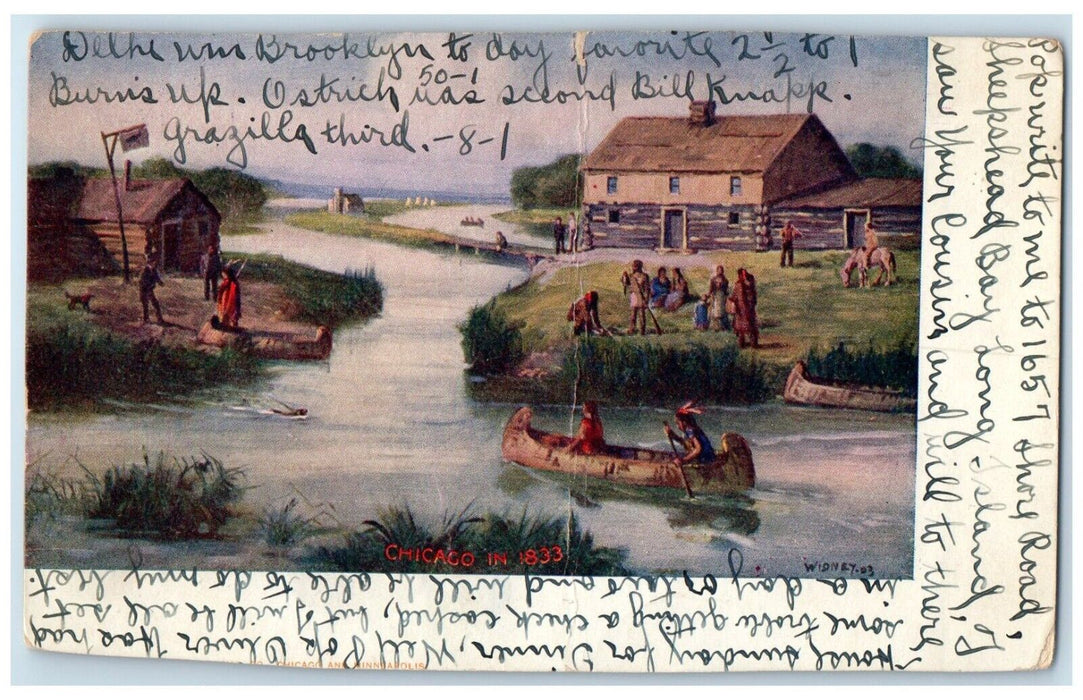 Delhi win Brooklyn to day favorite 2 1/2 to 1
50-1
Burns up. Ostrich was second Bill Knapp.
Grazilla third. -8-1
Pop write to me to 1657 Shore Road,
Sheepshead Bay Long-Island, I
saw Your Cousins and will to there
House Sunday for Dinner, Well Pop Oliver Has had
some troble getting a check cashed, but I will be all set
in a day or two and will be able to do my best.
CHICAGO IN 1833
WIDNEY-03
CHICAGO AND MINNEAPOLIS